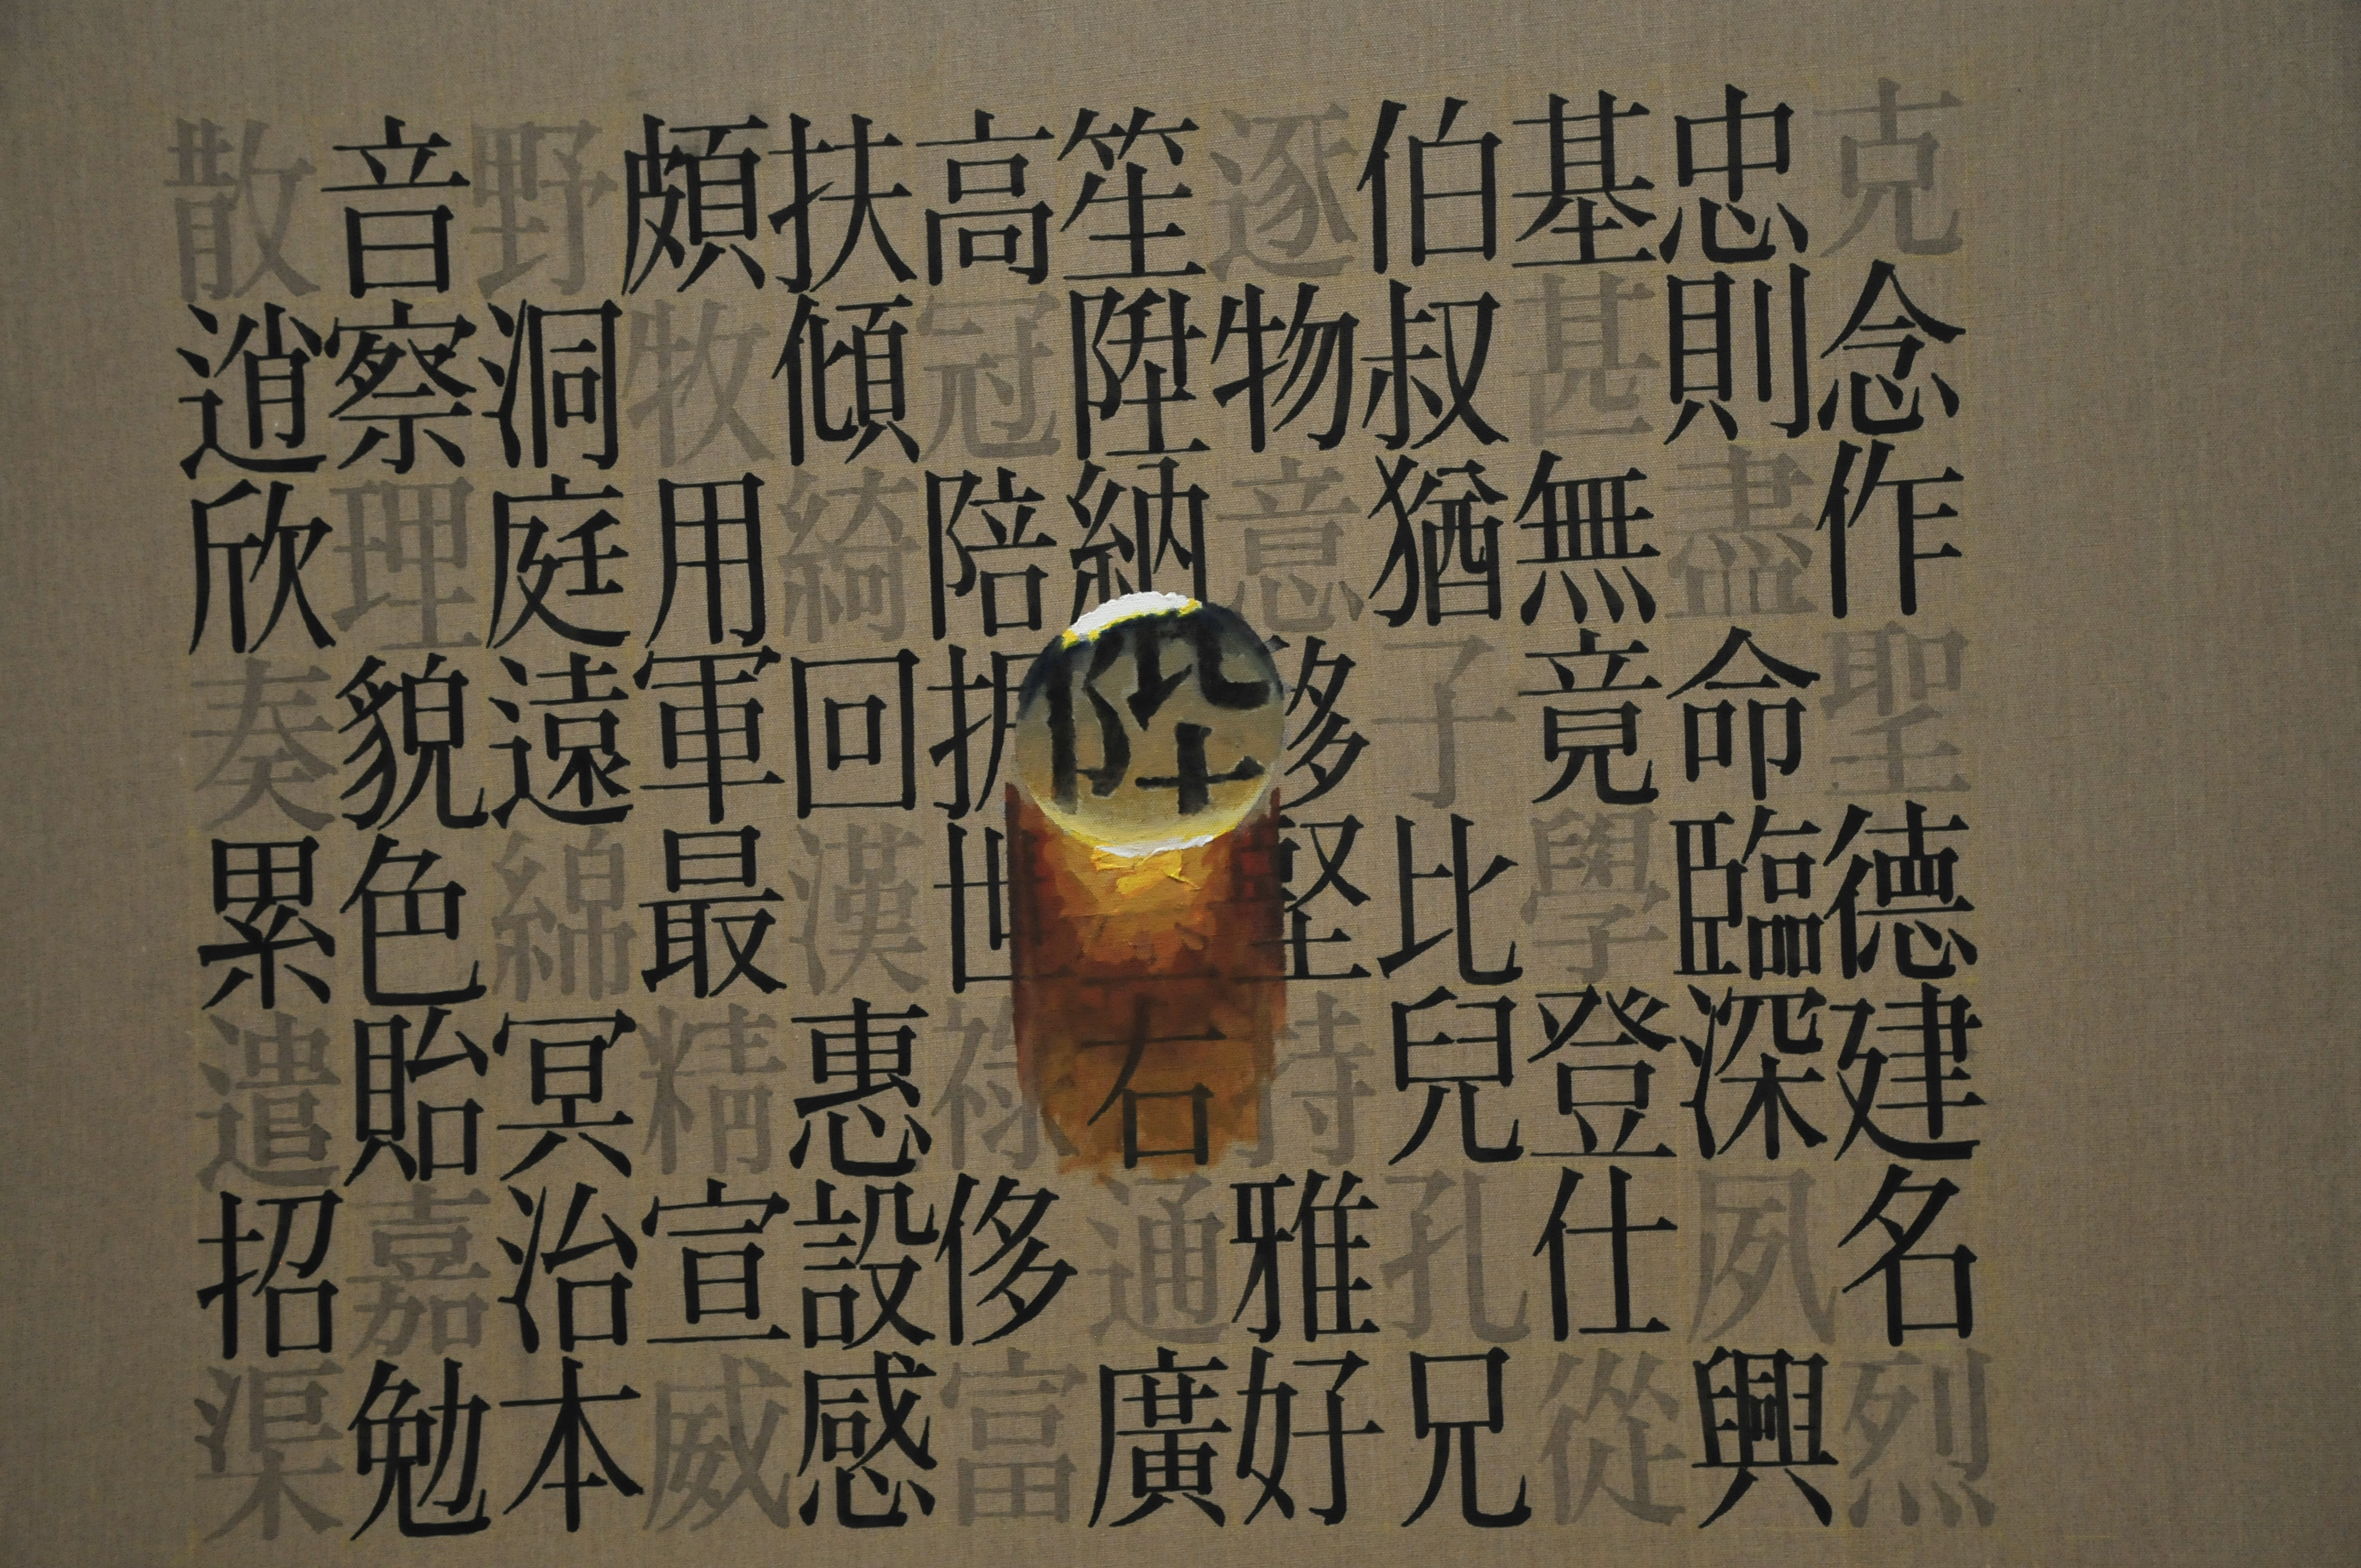 克念作聖德建名烈
忠則盡命臨深夙興
基甚無竟學登仕從
伯叔猶子比兒孔兄
逐物意移堅持雅好
笙陞納陛右通廣
高冠陪世祿侈富
扶傾綺回漢惠設感
頗牧用軍最精宣威
野洞庭遠綿冥治本
音察理貌色貽嘉勉
散逍欣奏累遣招渠